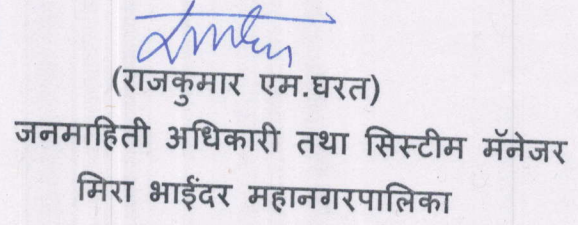 (राजकुमार एम.घरत)
जनमाहिती अधिकारी तथा सिस्टीम मॅनेजर
मिरा भाईंदर महानगरपालिका